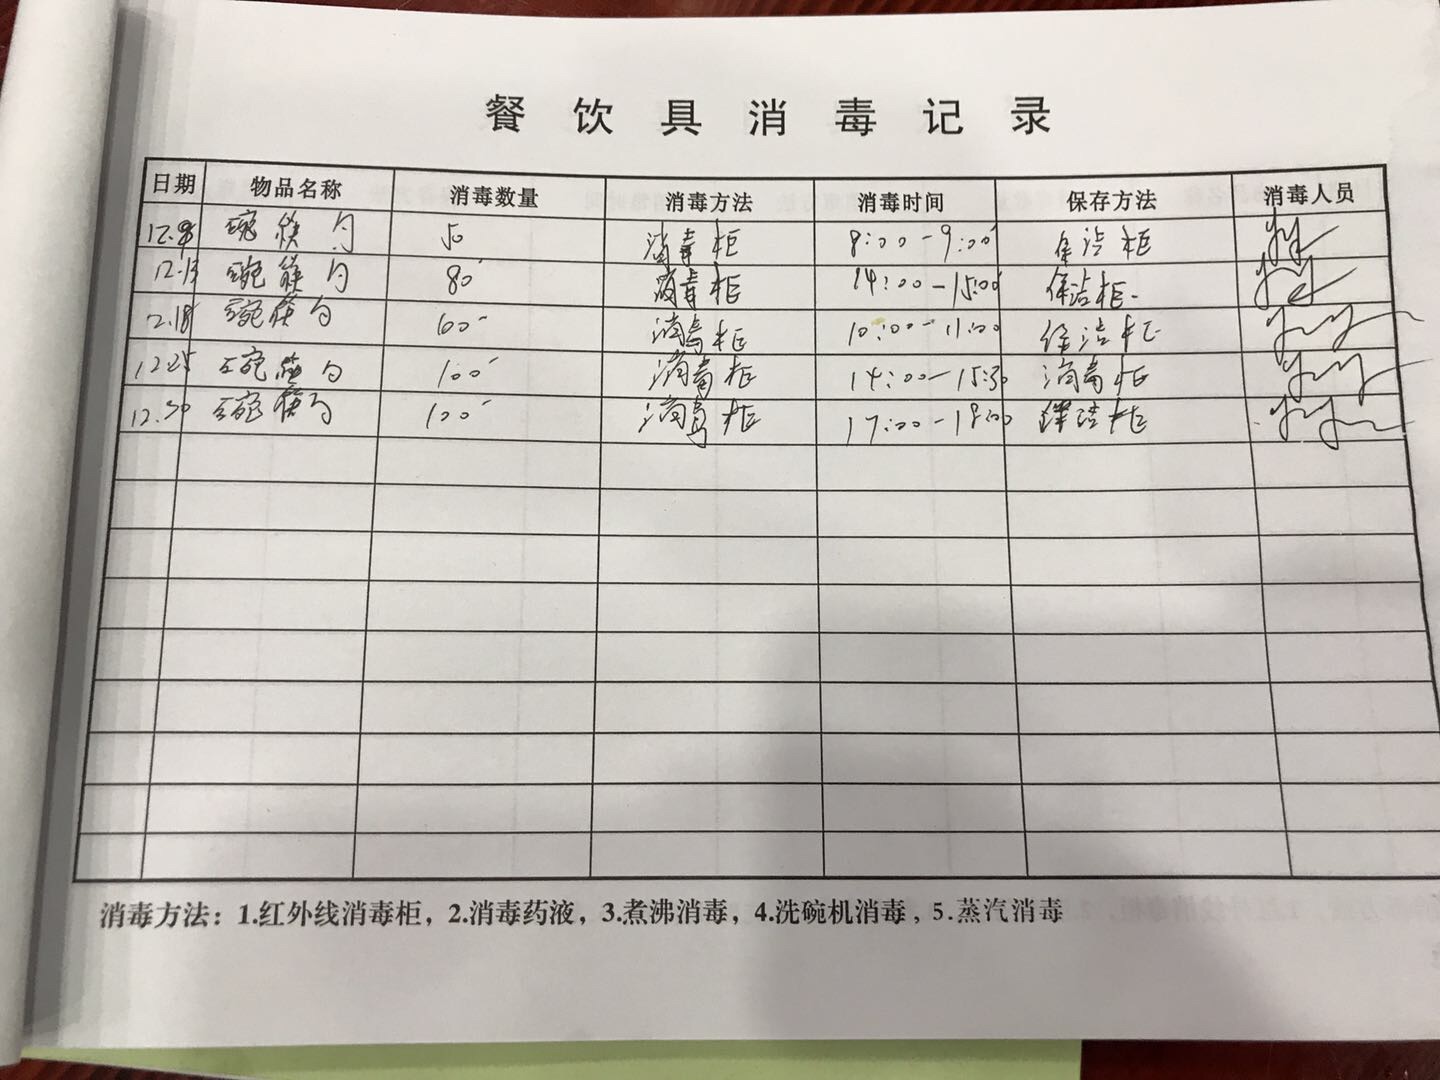 餐饮具消毒记录
日期 物品名称 消毒数量 消毒方法 消毒时间 保存方法 消毒人员
12.8 碗筷勺 50 消毒柜 8:00-9:00 保洁柜
12.13 碗筷勺 80 消毒柜 14:00-15:00 保洁柜
12.18 碗筷勺 消毒柜 10:00-11:00 保洁柜
12.25 碗筷勺 100 消毒柜 14:00-15:30 消毒柜
12.30 碗筷勺 120 消毒柜 17:00-18:00 保洁柜
消毒方法：1.红外线消毒柜，2.消毒药液，3.煮沸消毒，4.洗碗机消毒，5.蒸汽消毒